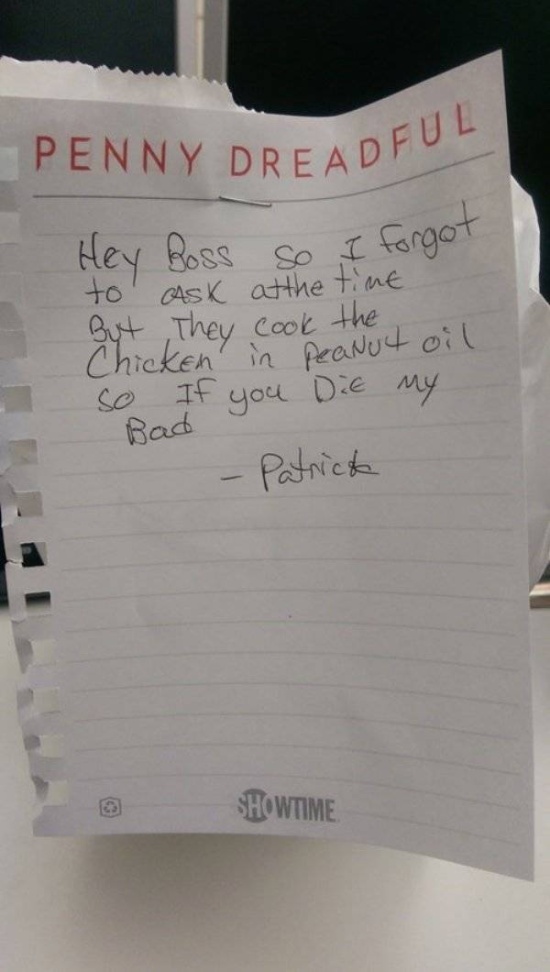 PENNY DREADFUL
Hey Boss so I forgot
to ask at the time
But They cook the
Chicken in PeaNut oil
so If you Die My
Bad
- Patrick
SHOWTIME